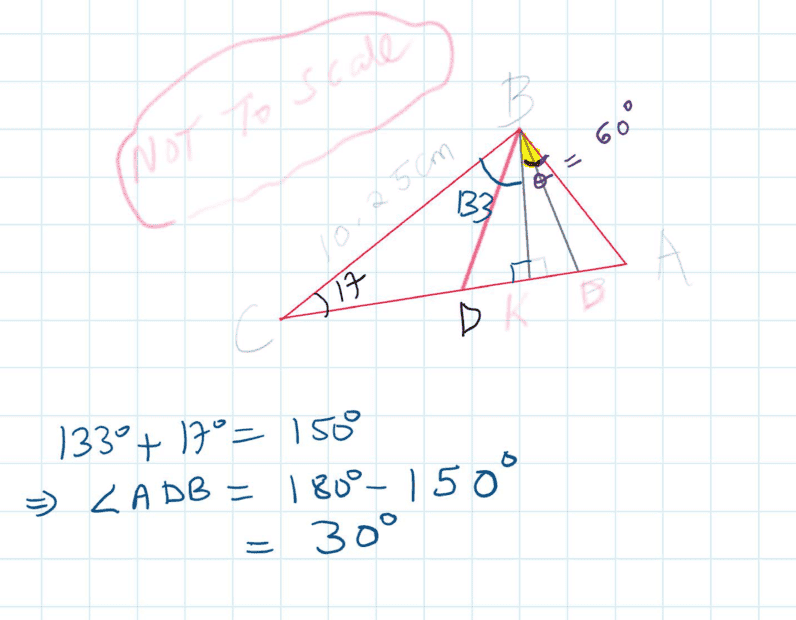 NOT To Scale
B
60°
θ =
10.25cm
133
17
A
C
D
K
B
133° + 17° = 150°
⇒ ∠ADB = 180° - 150°
= 30°